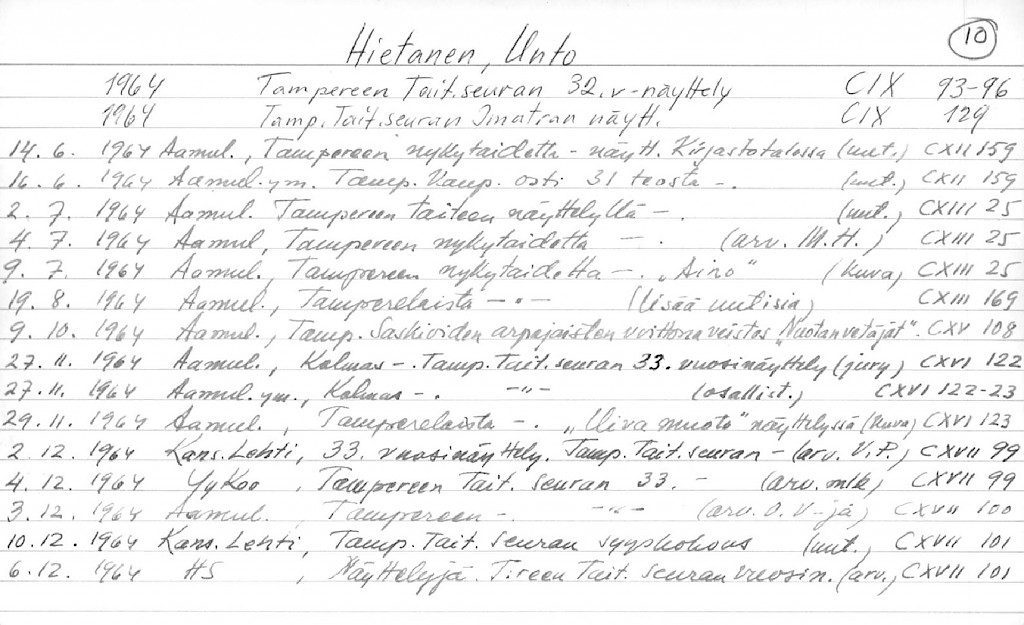 10
Hietanen, Unto
1964 Tampereen Tait.seuran 32.v-näyttely CIX 93-96
1964 Tamp.Tait.seuran Imatran näytt. CIX 129
14. 6. 1964 Aamul., Tampereen nykytaidetta - näytt. Kirjastotalossa (uut.) CXII 159
16. 6. 1964 Aamul.ym. Tamp. Kaup. osti 31 teosta -. (uut.) CXII 159
2. 7. 1964 Aamul. Tampereen taiteen näyttelyllä -. (uut.) CXIII 25
4. 7. 1964 Aamul, Tampereen nykytaidetta -. (arv. M.H.) CXIII 25
9. 7. 1964 Aamul., Tampereen nykytaidetta -. „Aino" (kuva) CXIII 25
19. 8. 1964 Aamul., Tamperelaista - " - (lisää uutisia) CXIII 169
9. 10. 1964 Aamul., Tamp. Saskioiden arpajaisten voittona veistos „Nuotanvetäjät". CXV 108
27. 11. 1964 Aamul., Kolmas -. Tamp.Tait.seuran 33. vuosinäyttely (jury) CXVI 122
27. 11. 1964 Aamul.ym., Kolmas -. - " - (osallist.) CXVI 122-23
29. 11. 1964 Aamul., Tamperelaista -. „Uiva muoto" näyttelyssä (kuva) CXVI 123
2. 12. 1964 Kans.Lehti, 33. vuosinäyttely. Tamp.Tait.seuran - (arv. V.P.) CXVII 99
4. 12. 1964 YyKoo, Tampereen Tait. seuran 33. - (arv. mlk) CXVII 99
3. 12. 1964 Aamul. Tampereen - - " - (arv. O. V-jä) CXVII 100
10. 12. 1964 Kans. Lehti, Tamp.Tait. seuran syyskokous (uut.) CXVII 101
6. 12. 1964 HS, Näyttelyjä. T:reen Tait. seuran vuosin. (arv.) CXVII 101